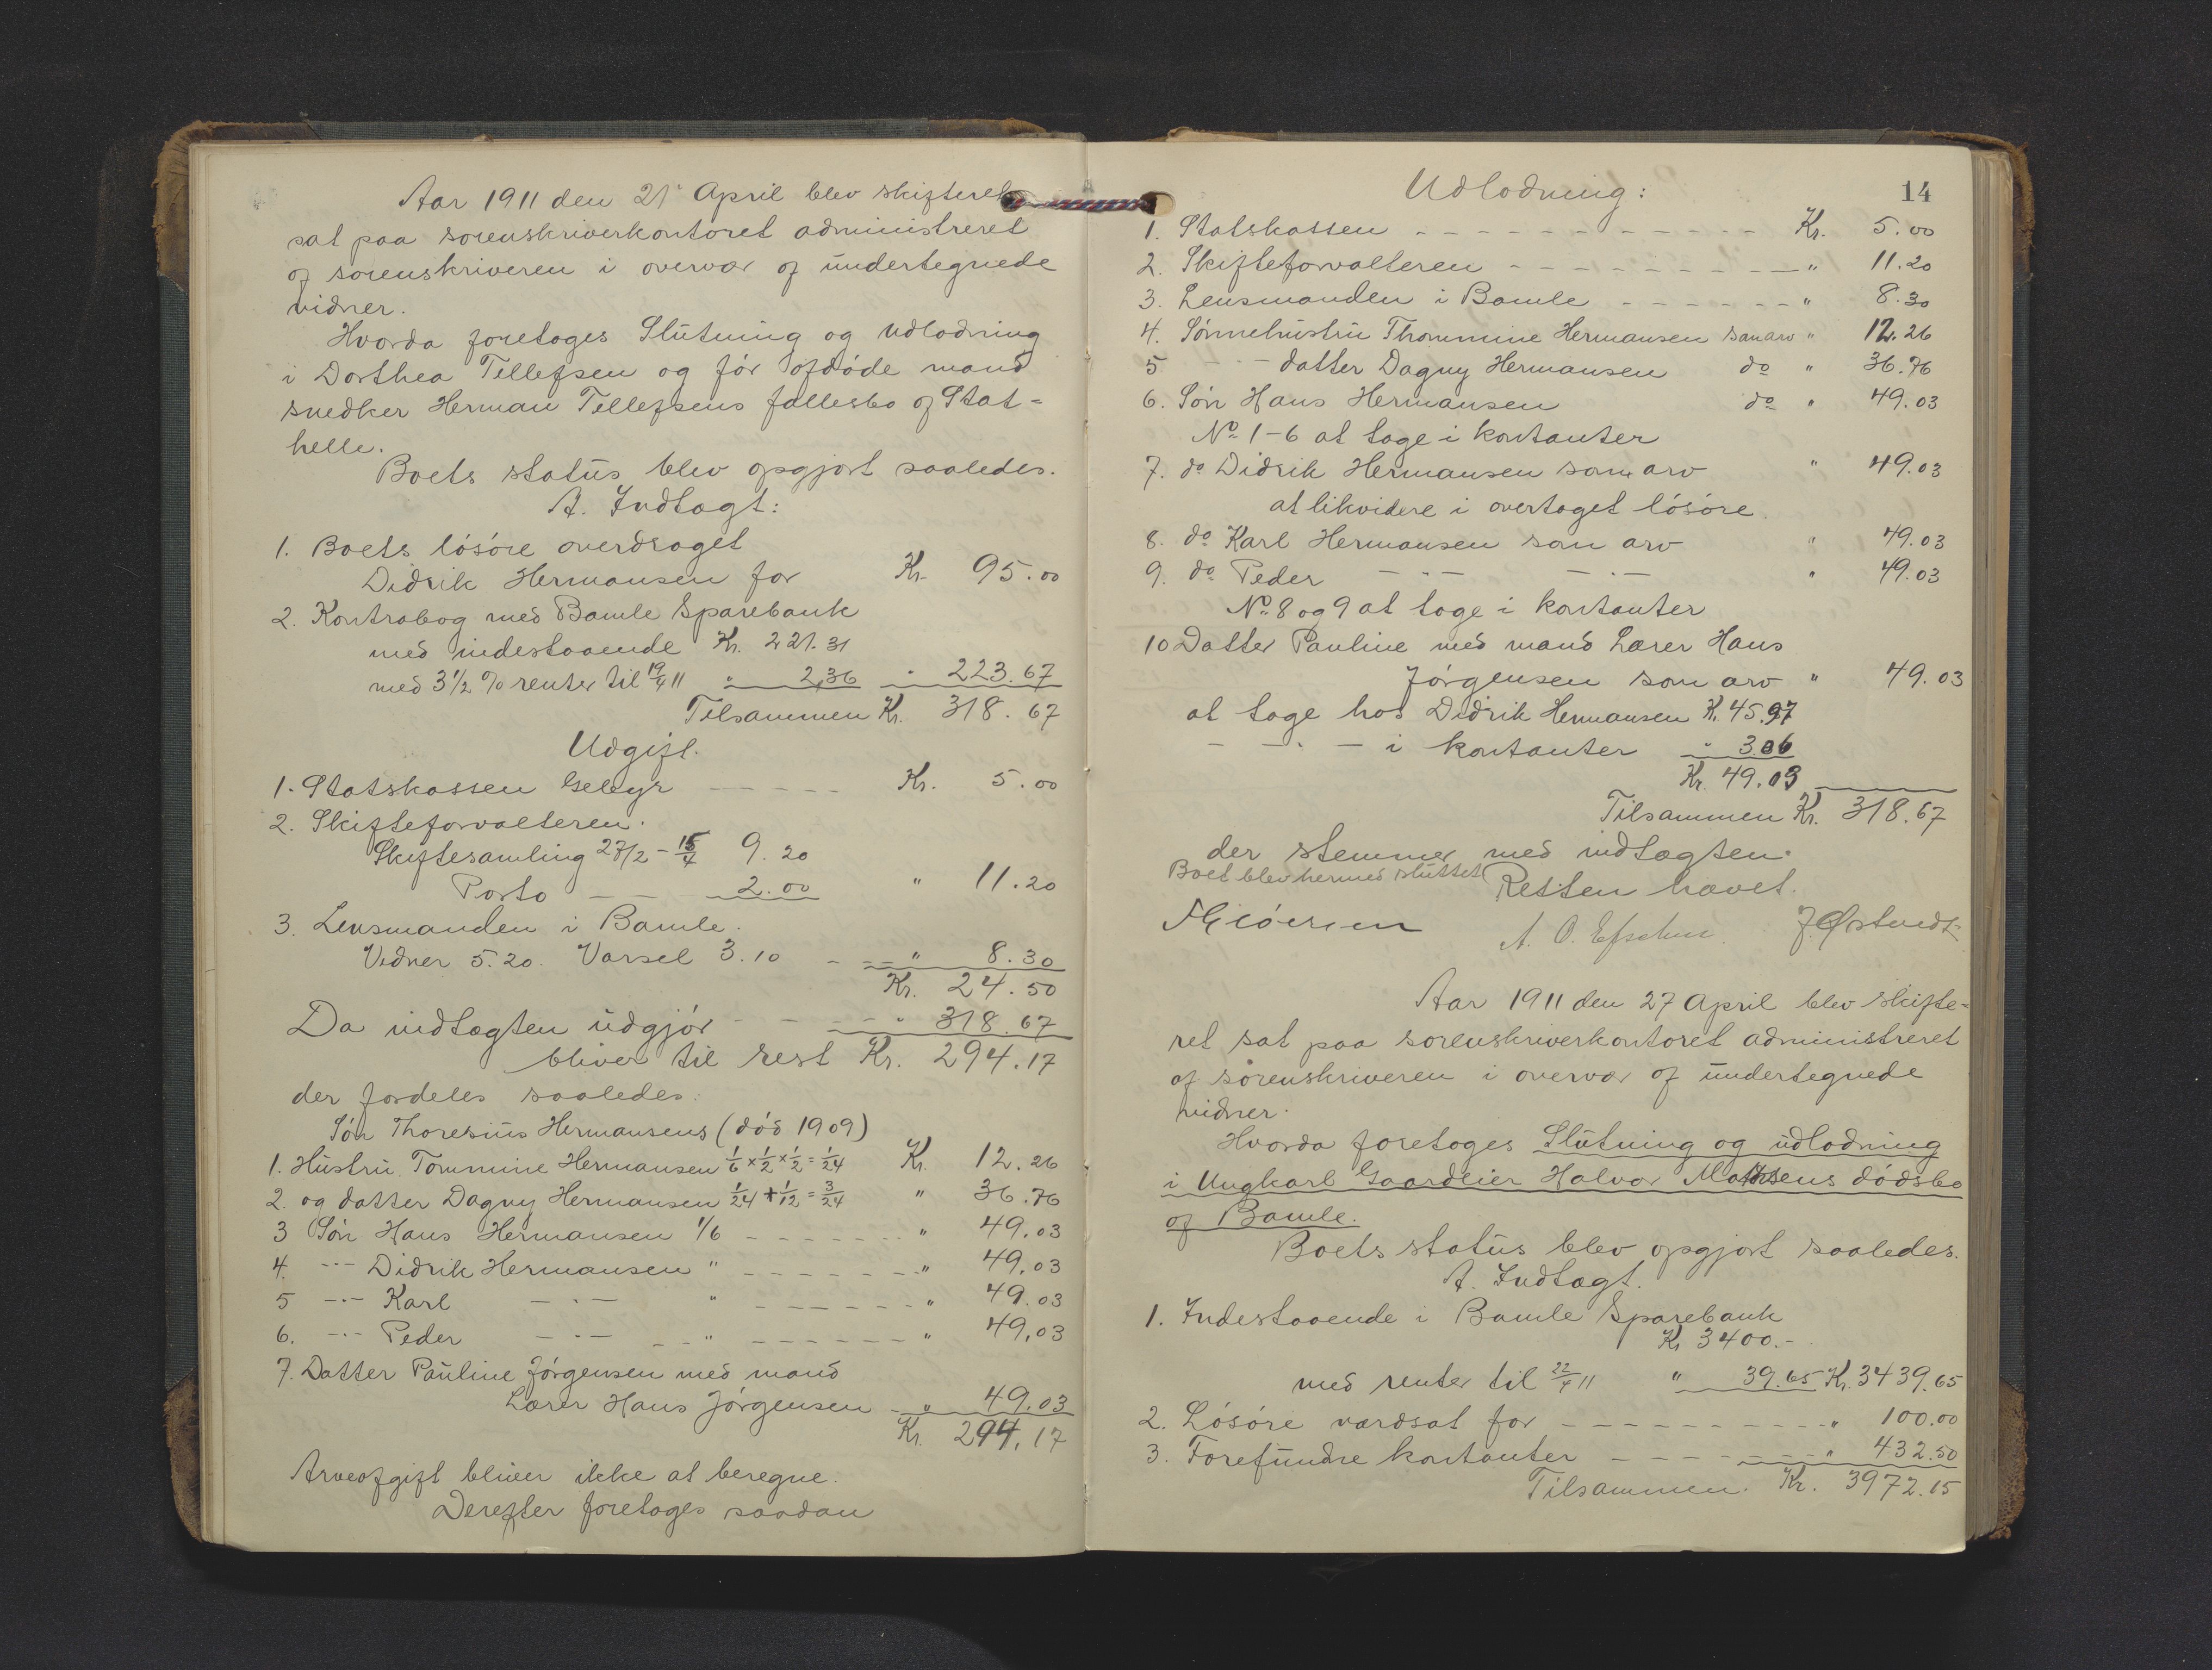 Aar 1911 den 21 April blev skifteret
sat paa sorenskriverkontoret administreret
af sorenskriveren i overvær af undertegnede
vidner.
Hvorda foretages Slutning og Udlodning
i Dorthea Tellefsen og før afdøde mand
snedker Herman Tellefsens fællesbo af Stat-
helle.
Boets status blev opgjort saaledes.
A. Indtægt:
1. Boets løsøre overdraget
Didrik Hermansen for Kr. 95.00
2. Kontrabog med Bamle Sparebank
med indestaaende Kr. 221.31
med 3 1/2 % renter til 19/4 11 " 2,36 " 223.67
Tilsammen Kr. 318.67
Udgift.
1. Statskassen Gebyr - - - - - Kr. 5.00
2. Skifteforvalteren.
Skiftesamling 27/2 - 15/4 9.20
Porto — — 2.00 " 11.20
3. Lensmanden i Bamle.
Vidner 5.20. Varsel 3.10 - - - " 8.30
Kr. 24.50
Da indtægten udgjør - - - - " 318.67
bliver til rest Kr. 294.17
der fordeles saaledes:
Søn Thoresius Hermansens (død 1909)
1. Hustru Tommine Hermansen 1/6 x 1/2 x 1/2 = 1/24 Kr. 12.26
2. og datter Dagny Hermansen 1/24 + 1/12 = 3/24 " 36.76
3 Søn Hans Hermansen 1/6 - - - - - - " 49.03
4. -"- Didrik Hermansen " - - - - - - " 49.03
5 -"- Karl — " — " - - - - - - " 49.03
6. -"- Peder — " — " - - - - - - " 49,03
7. Datter Pauline Jørgensen med mand
Lærer Hans Jørgensen - " 49.03
Kr. 294.17
Arveafgift bliver ikke at beregne.
Derefter foretages saadan
14
Udlodning:
1. Statskassen - - - - - - - - - - - - Kr. 5.00
2. Skifteforvalteren - - - - - - - - - - " 11.20
3. Lensmanden i Bamle - - - - - - - " 8.30
4. Sønnehustru Thommine Hermansen som arv " 12.26
5 - - datter Dagny Hermansen do " 36.76
6. Søn Hans Hermansen do " 49.03
No 1-6 at tage i kontanter
7. do Didrik Hermansen som arv " 49.03
at likvidere i overtaget løsøre.
8. do Karl Hermansen som arv " 49.03
9. do Peder — " — — " — " 49.03
No 8 og 9 at tage i kontanter
10 Datter Pauline med mand Lærer Hans
Jørgensen som arv " 49.03
at tage hos Didrik Hermansen K. 45.97
- - " - i kontanter " 3.06
Kr. 49.03
Tilsammen Kr. 318.67
der stemmer med indtægten.
Boet blev hermed sluttet
Retten hævet.
J. Østvedt
Aar 1911 den 27 April blev skifte-
ret sat paa sorenskriverkontoret administreret
af sorenskriveren i overvær af undertegnede
vidner.
Hvorda foretages Slutning og udlodning
i Ungkarl Gaardeier Halvor Mathisens dødsbo
af Bamle.
Boets status blev opgjort saaledes.
A. Indtægt.
1. Indestaaende i Bamle Sparebank
Kr 3400.-
med renter til 22/4 11 " 39.65 Kr. 3439.65
2. Løsøre værdsat for - - - - - - - - - - " 100.00
3. Forefundne kontanter - - - - - - - - " 432.50
Tilsammen. Kr. 3972.15